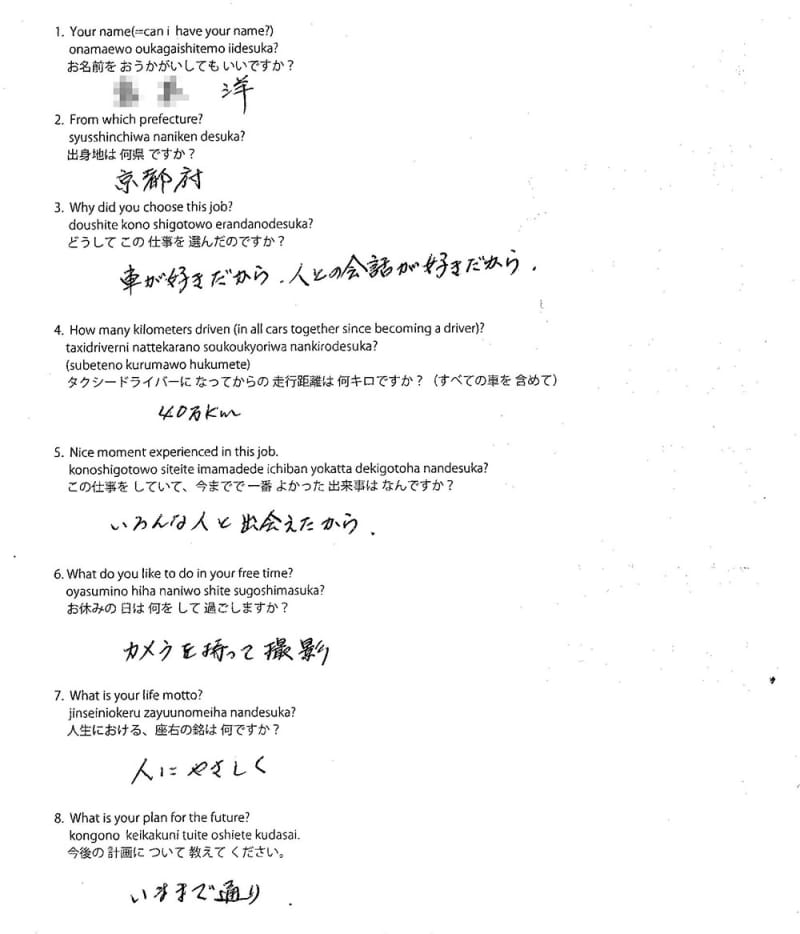 1. Your name(=can i have your name?)
onamaewo oukagaishitemo iidesuka?
お名前を おうかがいしても いいですか？
洋
2. From which prefecture?
syusshinchiwa naniken desuka?
出身地は 何県 ですか？
京都府
3. Why did you choose this job?
doushite kono shigotowo erandanodesuka?
どうして この 仕事を 選んだのですか？
車が好きだから．人との会話が好きだから．
4. How many kilometers driven (in all cars together since becoming a driver)?
taxidriverni nattekarano soukoukyoriwa nankirodesuka?
(subeteno kurumawo hukumete)
タクシードライバーに なってからの 走行距離は 何キロですか？（すべての車を 含めて）
40万Km
5. Nice moment experienced in this job.
konoshigotowo siteite imamadede ichiban yokatta dekigotoha nandesuka?
この仕事を していて、今までで 一番 よかった 出来事は なんですか？
いろんな人と出会えたから．
6. What do you like to do in your free time?
oyasumino hiha naniwo shite sugoshimasuka?
お休みの 日は 何を して 過ごしますか？
カメラを持って撮影
7. What is your life motto?
jinseiniokeru zayuunomeiha nandesuka?
人生における、座右の銘は 何ですか？
人にやさしく
8. What is your plan for the future?
kongono keikakuni tuite oshiete kudasai.
今後の 計画に ついて 教えて ください。
いままで通り．